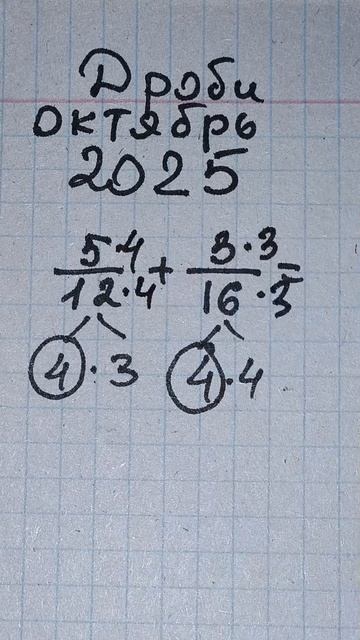 Дроби
октябрь
2025
5·4 + 3·3 =
12·4 16·3
4·3 4·4